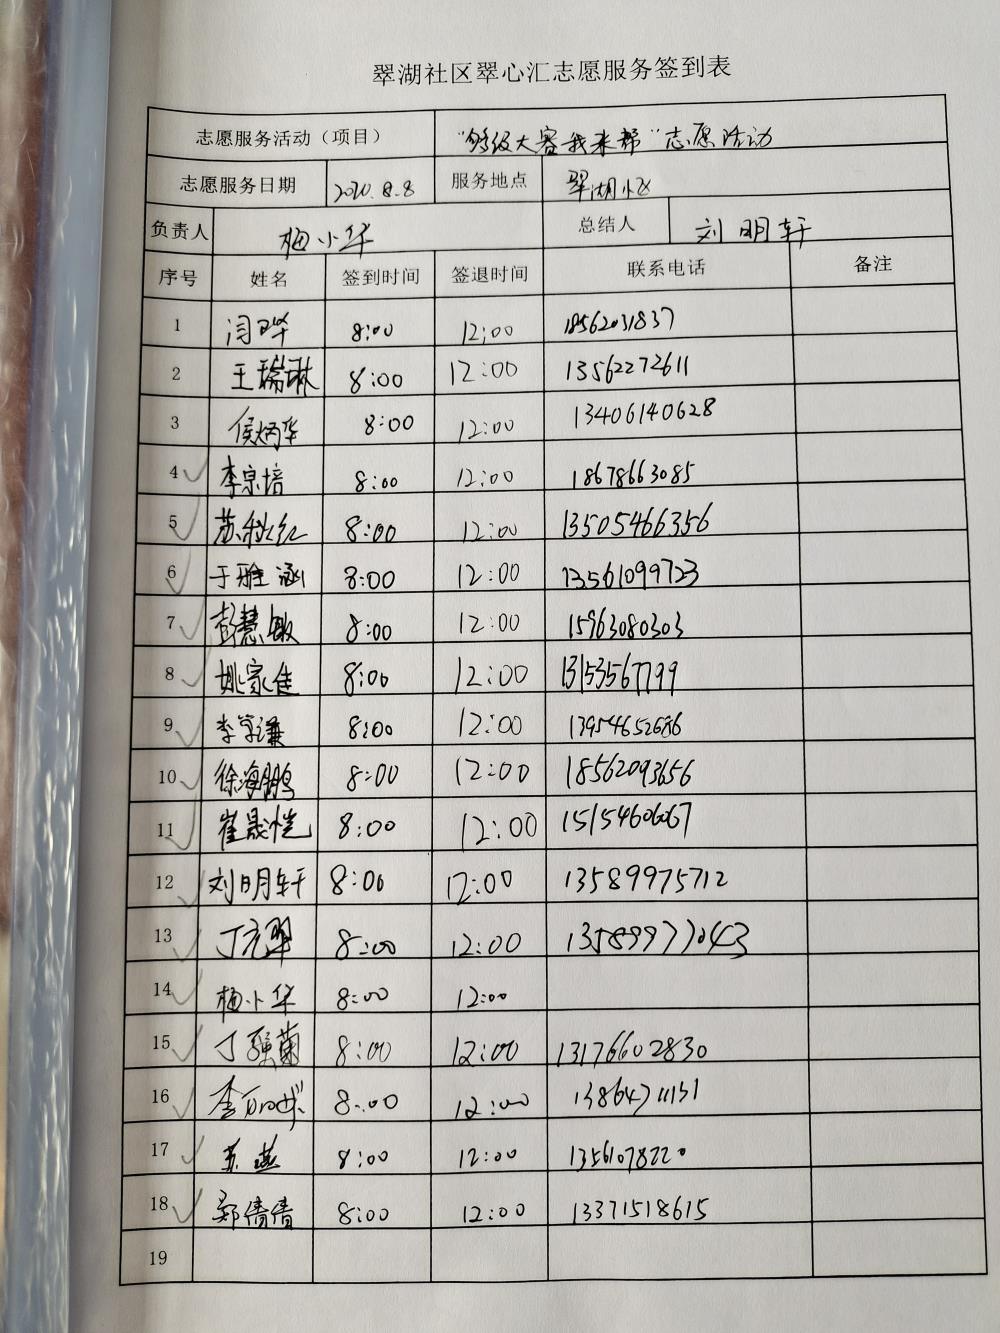 翠湖社区翠心汇志愿服务签到表
志愿服务活动（项目） “够级大赛我来帮”志愿活动
志愿服务日期 2020.8.8 服务地点 翠湖小区
负责人 梅小华 总结人 刘明轩
序号 姓名 签到时间 签退时间 联系电话 备注
1 闫晔 8:00 12:00 18562031837
2 王瑞琳 8:00 12:00 13562272611
3 侯炳华 8:00 12:00 13406140628
4 李宗培 8:00 12:00 18678663085
5 苏秋红 8:00 12:00 13505466356
6 于雅涵 8:00 12:00 13561099723
7 彭慧敏 8:00 12:00 15963080303
8 姚家佳 8:00 12:00 13153567799
9 8:00 12:00 13954652686
10 徐海鹏 8:00 12:00 18562093656
11 崔晟恺 8:00 12:00 15154606067
12 刘明轩 8:00 12:00 13589975712
13 8:00 12:00 13589977043
14 梅小华 8:00 12:00
15 8:00 12:00 13176602830
16 8:00 12:00 13864711131
17 苏燕 8:00 12:00 13561078220
18 郑倩倩 8:00 12:00 13371518615
19